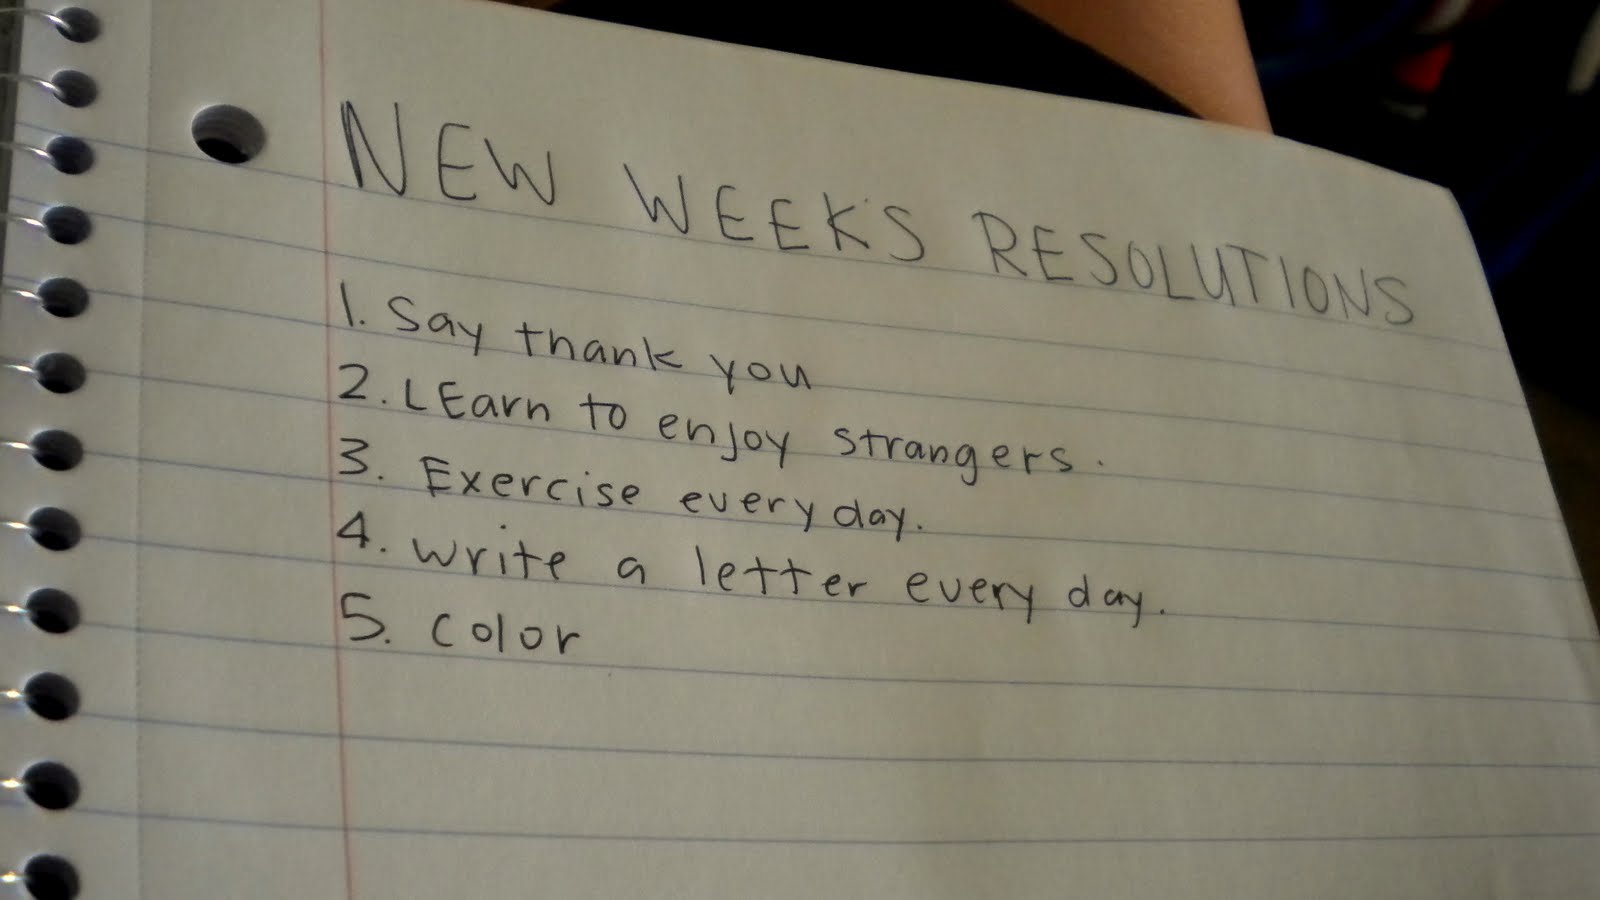 NEW WEEK'S RESOLUTIONS
1. Say thank you
2. LEarn to enjoy strangers.
3. Exercise every day.
4. write a letter every day.
5. color